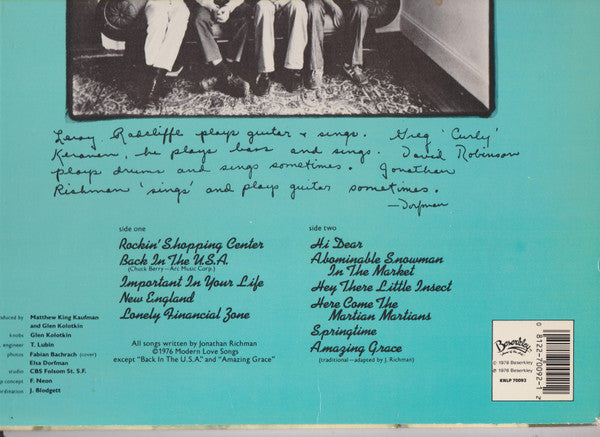 Leroy Radcliffe plays guitar & sings. Greg 'Curly'
Keranen, he plays bass and sings. David Robinson
plays drums and sings sometimes. Jonathan
Richman 'sings' and plays guitar sometimes.
—Dorfman
side one
Rockin' Shopping Center
Back In The U.S.A.
(Chuck Berry—Arc Music Corp.)
Important In Your Life
New England
Lonely Financial Zone
side two
Hi Dear
Abominable Snowman
In The Market
Hey There Little Insect
Here Come The
Martian Martians
Springtime
Amazing Grace
(traditional—adapted by J. Richman)
All songs written by Jonathan Richman
©1976 Modern Love Songs
except "Back In The U.S.A." and "Amazing Grace"
duced by Matthew King Kaufman
and Glen Kolotkin
knobs Glen Kolotkin
engineer T. Lubin
photos Fabian Bachrach (cover)
Elsa Dorfman
studio CBS Folsom St. S.F.
p concept F. Neon
rdination J. Blodgett
Beserkley
© 1976 Beserkley
℗ 1976 Beserkley
KNLP 70092
0 8122-70092-1 2